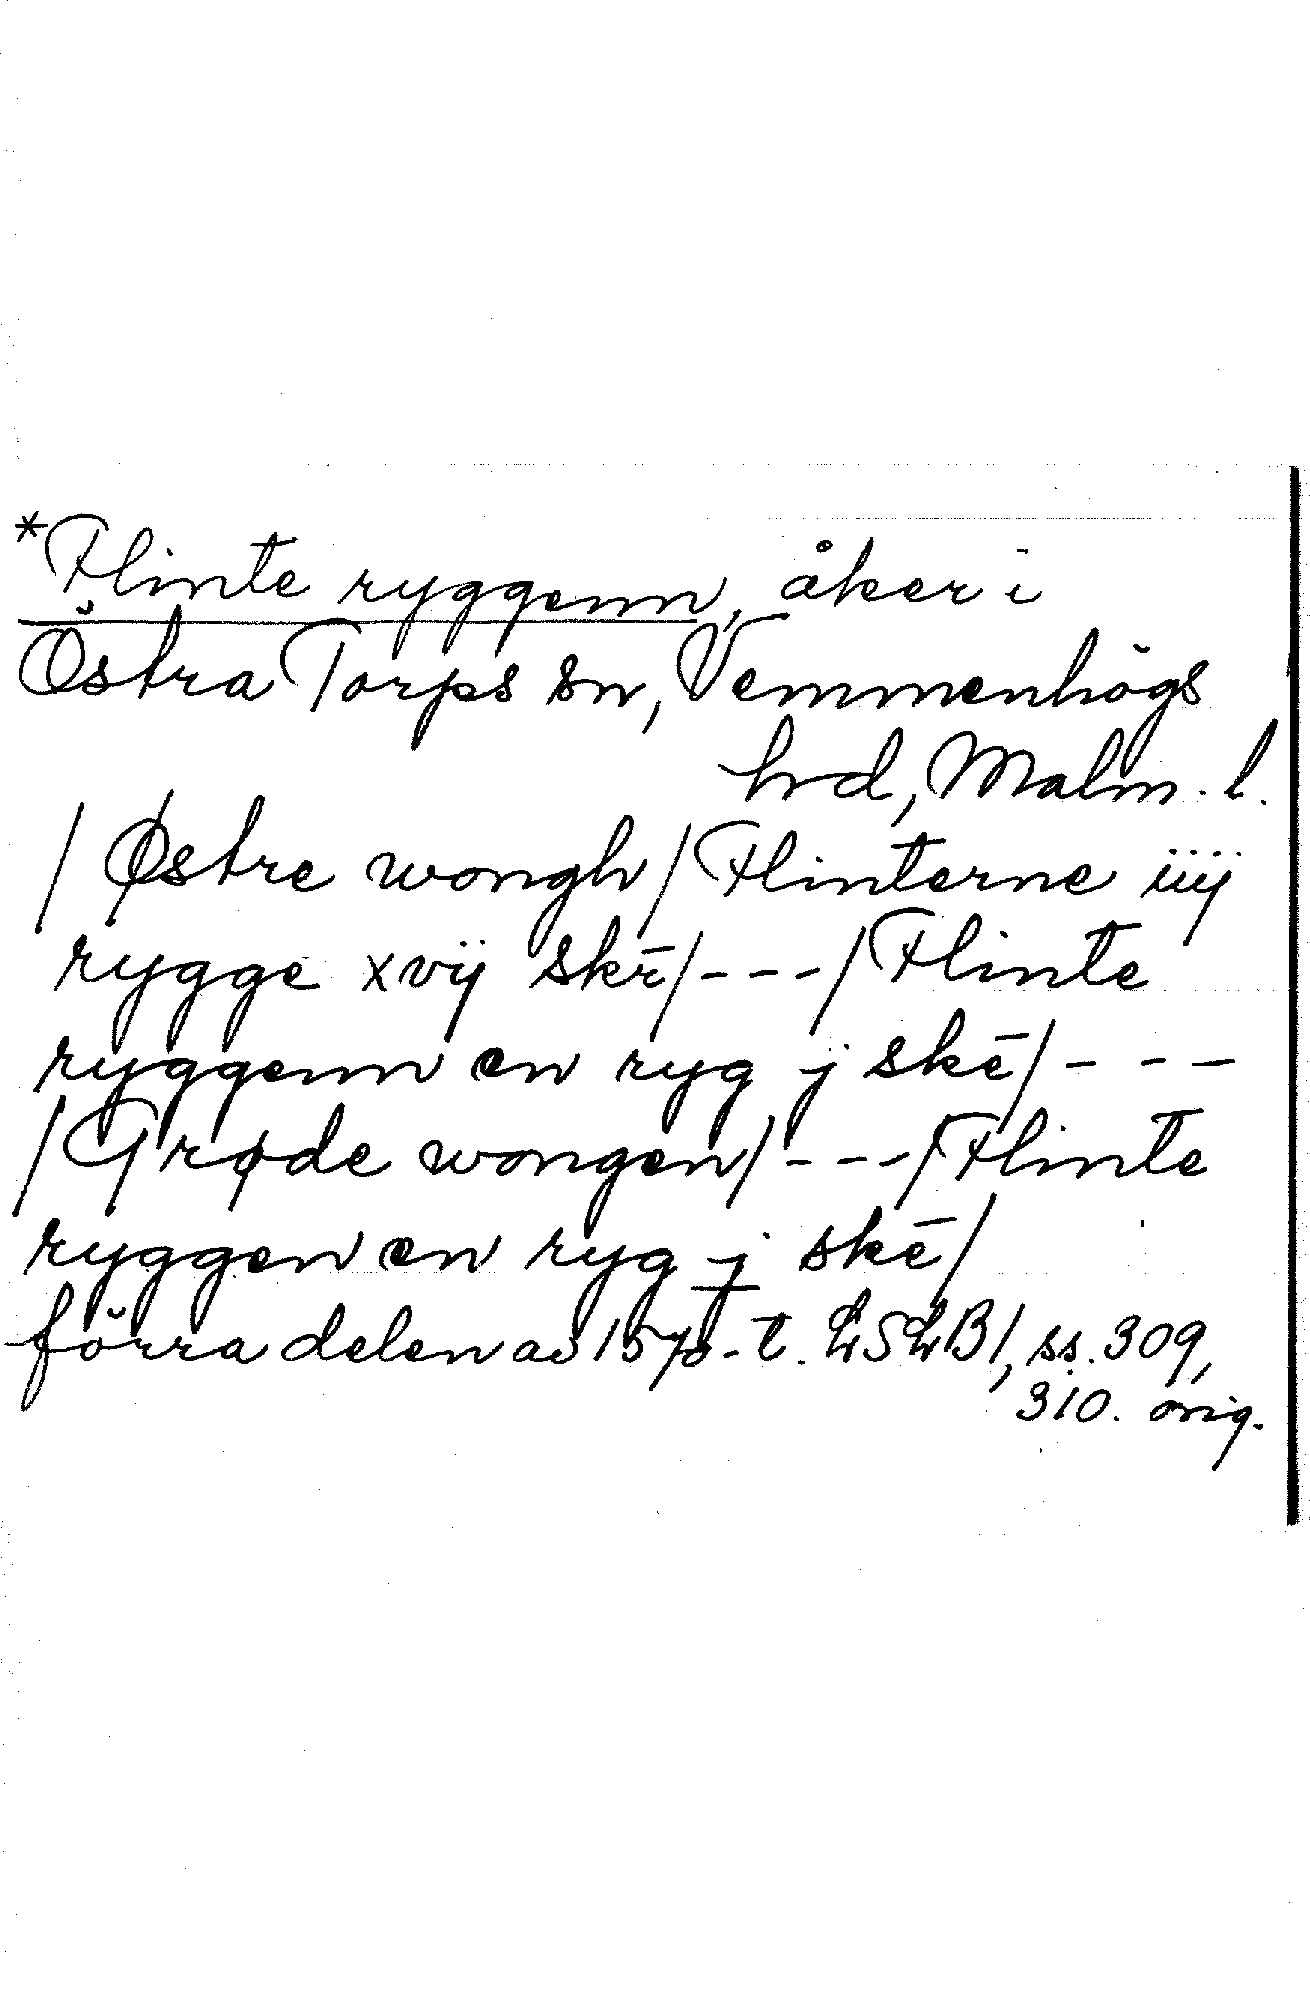 *Flinte ryggenn, åker i
Östra Torps sn, Vemmenhögs
hrd, Malm. l.
/ Østre wongh / Flinterne iiij
rygge xvij skr̄ / - - - / Flinte
ryggenn en ryg j skē / - - -
/ Grøde wongen / - - - / Flinte
ryggen en ryg j skē /
förra delen av 1570-t. LSLB1, ss. 309,
310. orig.